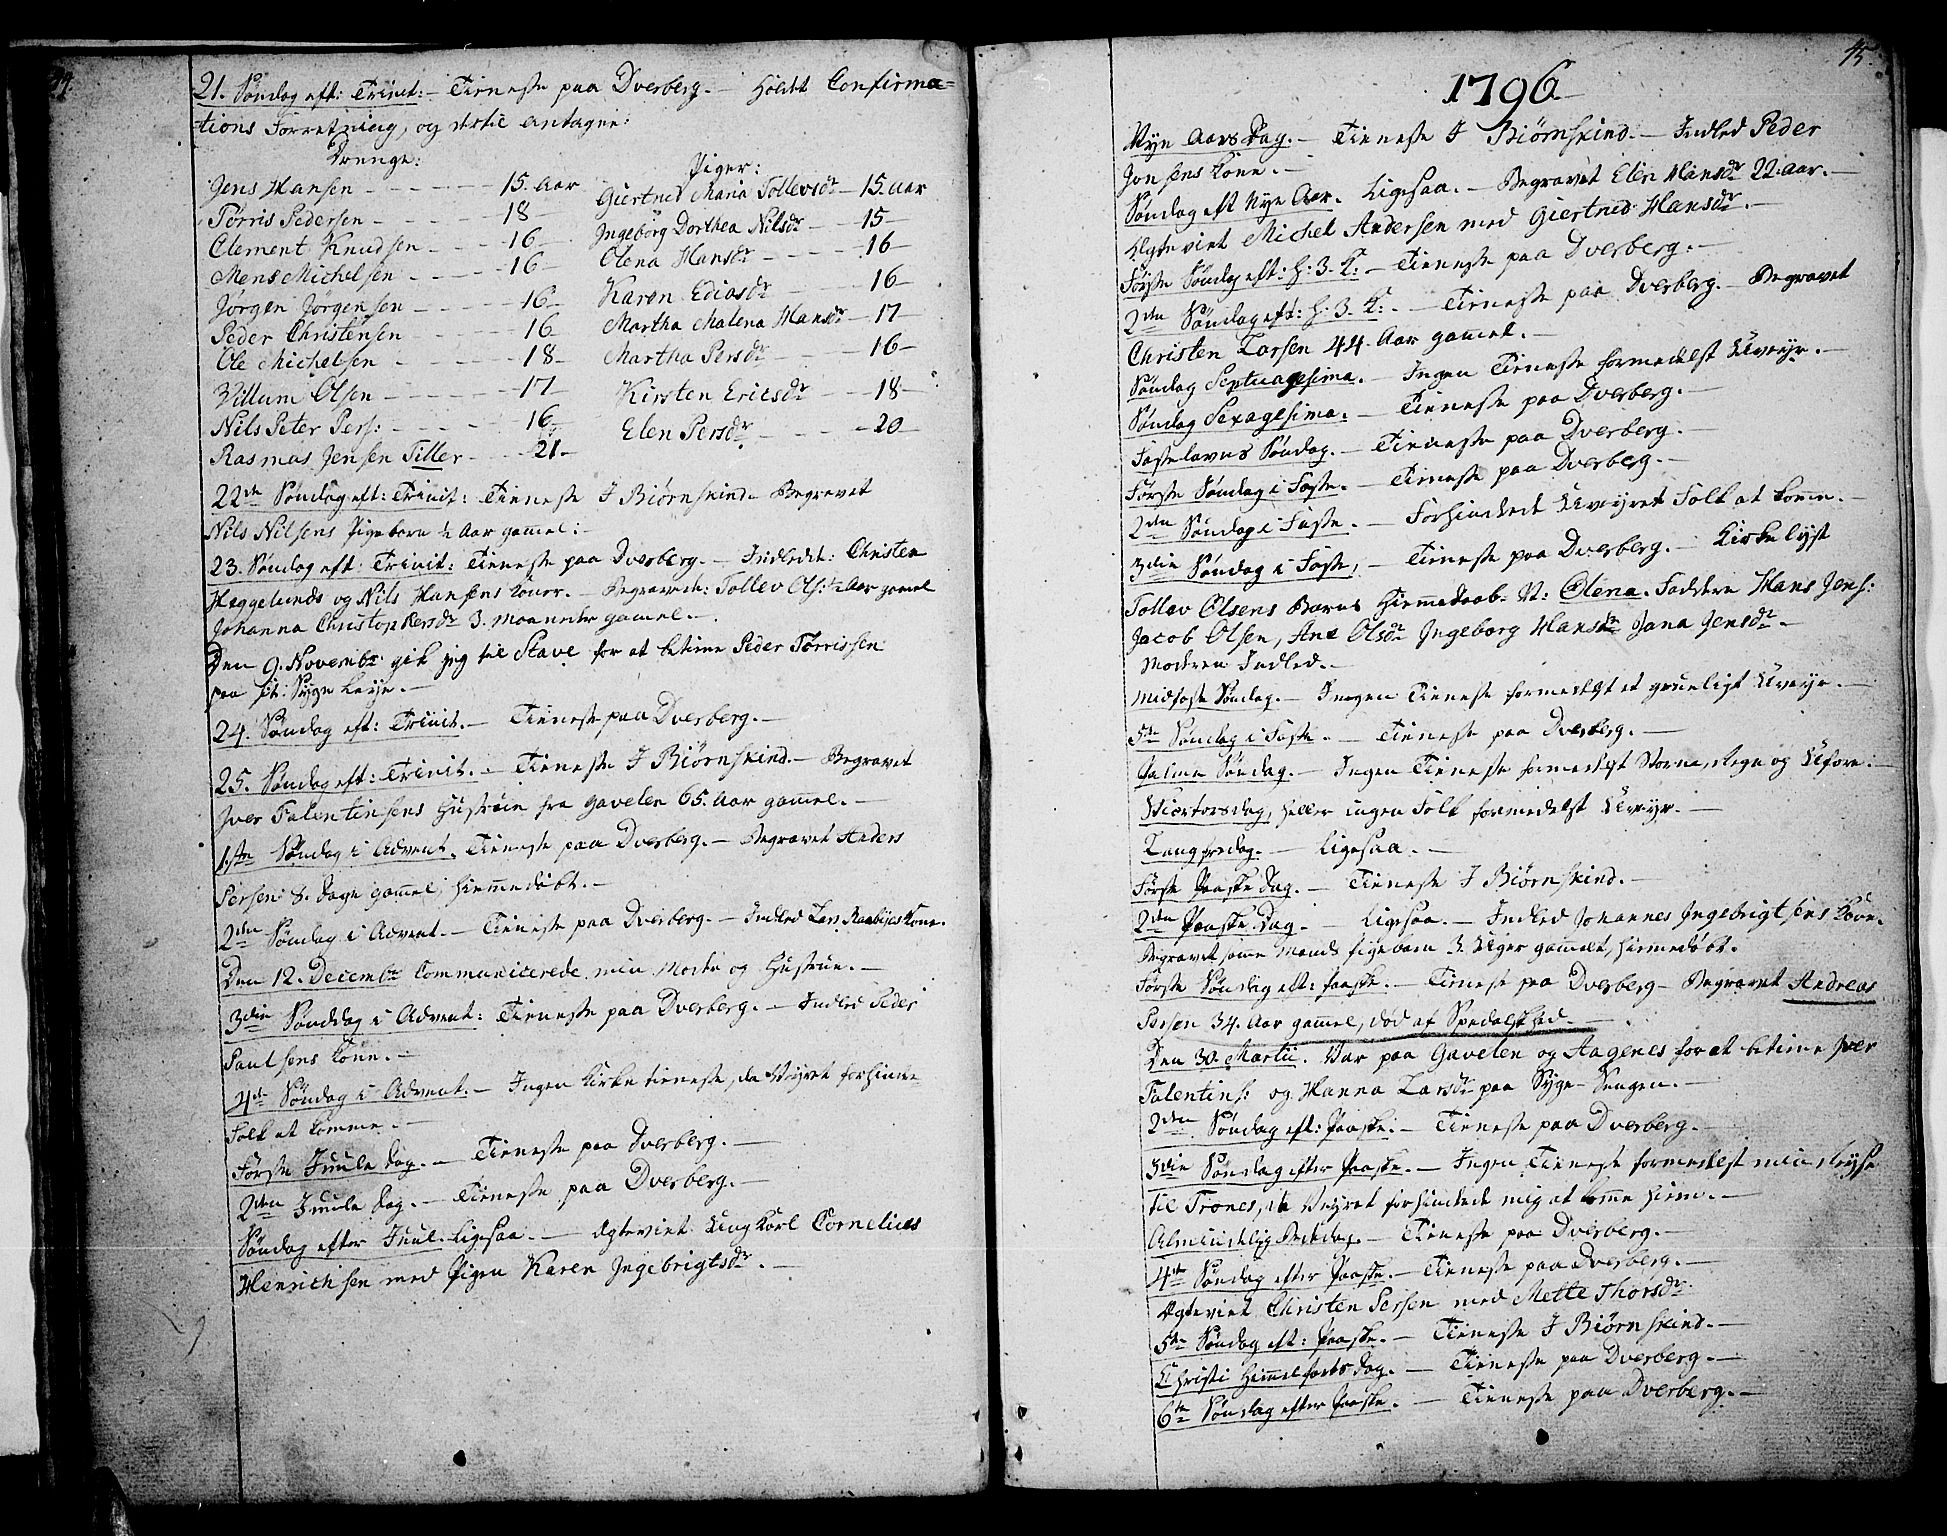 44.
21. Søndag eft: Trinit: — Tieneste paa Dverberg. — Holdt Confirma=
tions Forretning, og dertil antagne:
Drenge:
Jens Hansen - - - - 15. Aar
Tørris Pedersen - - - - 18
Clement Knudsen - - - 16
Mons Michelsen - - - - 16
Jørgen Jørgensen - - - 16
Peder Christensen - - - 16
Ole Michelsen - - - - 18
Villum Olsen - - - - 17
Nils Peter Pers: - - - - 16
Rasmus Jensen Tiller - - - 21
Piger:
Giertrud Maria Tollevsdr — 15. Aar
Ingebörg Dorthea Nilsdr — 15
Olena Hansdr - - - - 16
Karen Ediasdr - - - 16
Martha Malena Hansdr — 17
Martha Persdr - - - 16
Kirsten Ericsdr - - - 18
Elen Persdr - - - - 20
22de Søndag eft: Trinit: Tieneste I Biørnskind. Begravet
Nils Nilsens Pigebarn ½ Aar gammel:
23. Søndag eft: Trinit: Tieneste paa Dverberg. — Indledet: Christen
Heggelunds og Nils Hansens Koner. — Begravede: Tollev Ols: ½ Aar gamel
Johanna Christophersdr 3. Maaneder gammel. —
Den 9. Novembr gik jeg til Stave for at betiene Peder Tørrissen
paa sit Syge Leye. —
24. Søndag eft: Trinit. — Tieneste paa Dverberg. —
25. Søndag eft: Trinit. — Tieneste I Biørnskind. — Begravet
Iver Falentinsens Hustrue fra Gavelen 65. Aar gammel. —
1ste Søndag i Advent. Tieneste paa Dverberg. — Begravet Anders
Persen 8. Dage gammel, hiemmedøbt. —
2den Søndag i Advent. — Tieneste paa Dverberg. — Indled Lars Kone.
Den 12. Decembr Communicerede min Moder og Hustrue. —
3die Sønddag i Advent: Tieneste paa Dverberg. — Indled Peder
Paulsens Kone. —
4de Søndag i Advent. — Ingen Kirketieneste, da Veyret forhindrede
Folk at komme. —
Første Juule Dag. — Tieneste paa Dverberg. —
2den Juule Dag. — Tieneste paa Dverberg. —
Søndag efter Juul. Ligesaa. — Ægteviet Ung Karl Cornelius
Henrichsen med Pigen Karen Ingebrigtsdr. —
45.
1796.
Nye Aars Dag. — Tieneste I Biørnskind. — Indled Peder
Jonsens Kone. —
Søndag eft Nye Aar. Ligesaa. — Begravet Elen Hansdr 22. Aar. —
Ægteviet Michel Andersen med Giertrud Hansdr. —
Første Søndag eft: H: 3. K: — Tieneste paa Dverberg. —
2den Søndag eft: H: 3. K: — Tieneste paa Dverberg. — Begravet
Christen Larsen 44. Aar gamel. —
Søndag Septuagesima. — Ingen Tieneste formedelst Uveyr. —
Søndag Sexagesima. — Tieneste paa Dverberg. —
Fastelavns Søndag. — Tieneste paa Dverberg. —
Første Søndag i Faste. — Tieneste paa Dverberg. —
2den Søndag i Faste. — Forhindrede Uveyret Folk at kome. —
3die Søndag i Faste, — Tieneste paa Dverberg. — Kirkelyst
Tollev Olsens Barns Hiemmedaab. N: Olena. Faddere Hans Jens:
Jacob Olsen, Ane Olsdr Ingeborg Hansdr Jana Jensdr —
Moderen Indled. —
Midfaste Søndag. — Ingen Tieneste formedelst et grueligt Uveyr. —
5te Søndag i Faste. — Tieneste paa Dverberg. —
Palme Søndag. — Ingen Tieneste formedelst og Uføre. —
Skiertorsdag, heller ingen Folk formedelst Uveyr. —
Langfredag. — Ligesaa. —
Første Paaske Dag. — Tieneste I Biørnskind. —
2den Paaske Dag. — Ligesaa. — Indled Johannes Ingebrigtsens Kone.
Begravet samme Mands Pigebarn 3. Uger gammelt, hiemmedøbt.
Første Søndag eft: Paaske. — Tieneste paa Dverberg — Begravet Andreas
Persen 34. Aar gammel, død af Spedalskhed. —
Den 30. Martii. Var paa Gavelen og Aagenes for at betiene Iver
Falentins: og Hanna Larsdr paa Syge Sengen. —
2den Søndag eft: Paaske. — Tieneste paa Dverberg. —
3die Søndag efter Paaske. — Ingen Tieneste formedelst min Reyse
til Trones, da Veyret forhindrede mig at komme hiem. —
Almindelig Bededag. — Tieneste paa Dverberg. —
4de Søndag efter Paaske. — Tieneste paa Dverberg. —
Ægteviet Christen Persen med Mette Thorsdr
5te Søndag eft: Paaske. — Tieneste I Biørnskind. —
Christi Himmelfarts Dag. — Tieneste paa Dverberg. —
6te Søndag efter Paaske. — Tieneste paa Dverberg. —